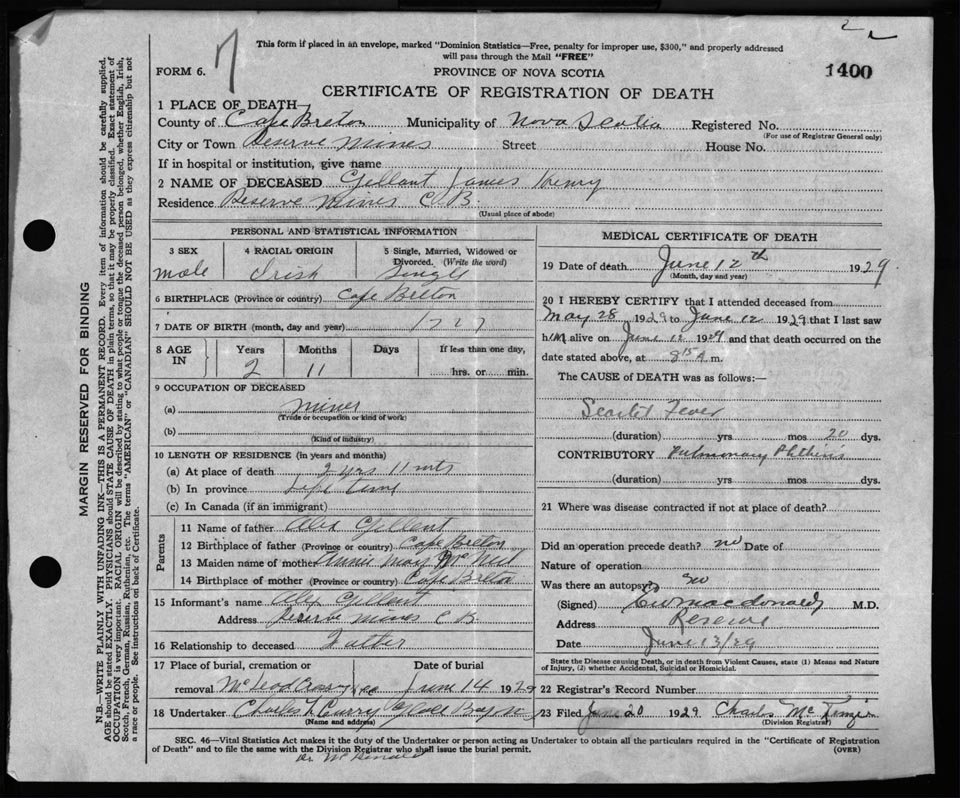 This form if placed in an envelope, marked "Dominion Statistics—Free, penalty for improper use, $300," and properly addressed
will pass through the Mail "FREE"
7
FORM 6.
PROVINCE OF NOVA SCOTIA
1400
CERTIFICATE OF REGISTRATION OF DEATH
1 PLACE OF DEATH
County of Cape Breton Municipality of Nova Scotia Registered No.
(For use of Registrar General only)
City or Town Reserve Mines Street House No.
If in hospital or institution, give name
2 NAME OF DECEASED Gillant James Henry
Residence Reserve Mines C B.
(Usual place of abode)
PERSONAL AND STATISTICAL INFORMATION
3 SEX 4 RACIAL ORIGIN 5 Single, Married, Widowed or
Divorced. (Write the word)
male Irish Single
6 BIRTHPLACE (Province or country) Cape Breton
7 DATE OF BIRTH (month, day and year)
8 AGE IN Years Months Days If less than one day,
2 11 hrs. or min.
9 OCCUPATION OF DECEASED
(a) miner
(Trade or occupation or kind of work)
(b)
(Kind of industry)
10 LENGTH OF RESIDENCE (in years and months)
(a) At place of death 2 yrs 11 mts
(b) In province Life time
(c) In Canada (if an immigrant)
Parents
11 Name of father Alex Gillant
12 Birthplace of father (Province or country) Cape Breton
13 Maiden name of mother Annie May
14 Birthplace of mother (Province or country) Cape Breton
15 Informant's name Alex Gillant
Address Reserve Mines C B.
16 Relationship to deceased Father
17 Place of burial, cremation or Date of burial
removal McLeod June 14 1929
18 Undertaker Charles L Curry Glace Bay
(Name and address)
MEDICAL CERTIFICATE OF DEATH
19 Date of death June 12th 1929.
(Month, day and year)
20 I HEREBY CERTIFY that I attended deceased from
May 28 1929 to June 12 1929 that I last saw
him alive on June 12 1929 and that death occurred on the
date stated above, at 8 15 A. m.
The CAUSE of DEATH was as follows:—
Scarlet Fever
(duration) yrs mos 20 dys.
CONTRIBUTORY Pulmonary Phthisis
(duration) yrs. mos. dys.
21 Where was disease contracted if not at place of death?
Did an operation precede death? no Date of
Nature of operation
Was there an autopsy? no
(Signed) Macdonald M.D.
Address Reserve
Date June 13/29
State the Disease causing Death, or in death from Violent Causes, state (1) Means and Nature
of Injury, (2) whether Accidental, Suicidal or Homicidal.
22 Registrar's Record Number
23 Filed June 20 1929 Charles
(Division Registrar)
SEC. 46—Vital Statistics Act makes it the duty of the Undertaker or person acting as Undertaker to obtain all the particulars required in the "Certificate of Registration
of Death" and to file the same with the Division Registrar who shall issue the burial permit.
(OVER)
Dr. McDonald
MARGIN RESERVED FOR BINDING
N.B.—WRITE PLAINLY WITH UNFADING INK—THIS IS A PERMANENT RECORD. Every item of information should be carefully supplied.
AGE should be stated EXACTLY. PHYSICIANS should STATE CAUSE OF DEATH in plain terms, so that it may be properly classified. Exact statement of
OCCUPATION is very important. RACIAL ORIGIN will be described by stating to what people or tongue the deceased person belonged, whether English, Irish,
Scotch, French, German, Russian, Ruthenian, etc. The terms "AMERICAN" or "CANADIAN" SHOULD NOT BE USED as they express citizenship but not
a race or people. See instructions on back of Certificate.